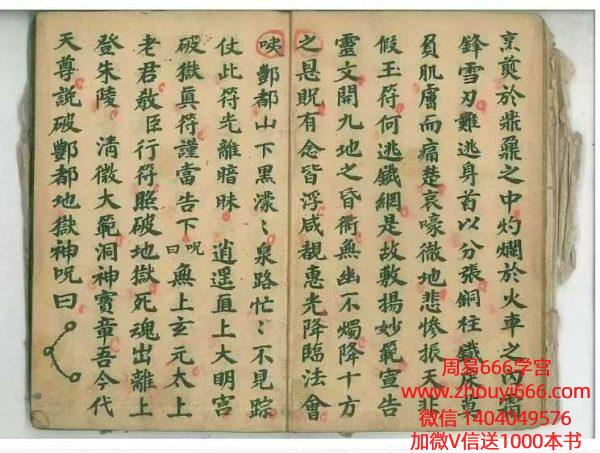 烹煎於鼎鼐之中灼爛於火車之内霜
鋒雪刃難逃身首以分張銅柱鐵床
負肌膚而痛楚哀嚎徹地悲慘振天非
假玉符何逃鐵網是故敷揚妙範宣告
靈文開九地之昏衢無幽不燭降十方
之恩貺有念皆浮咸覩惠光降臨法會
咦酆都山下黑濛〻泉路忙〻不見踪
仗此符光離暗昧 逍遥直上大明宫
破獄真符謹當告下 呪曰 無上玄元太上
老君敎臣行符照破地獄死魂出離上
登朱陵 清微大範洞神寳章吾今代
天尊説破酆都地獄神呪曰
周易666学宫
www.zhouyi666.com
微信1404049576
加微V信送1000本书